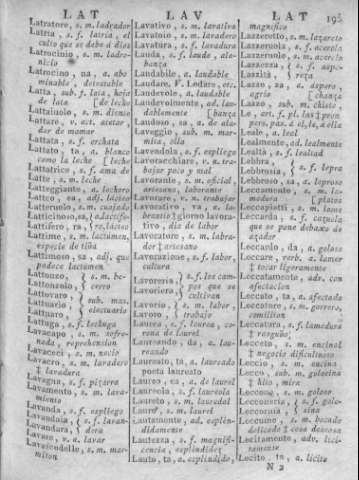 LAT
LAV
LAT
195
Latratore, s. m. ladrador
Latria, s. f. latria, el
culto que se debe á dios
Latrocinio, s. m. ladro-
nicio
Latrocino, na, a. abo
minable, detestable
Latta, sub. f. lata, hoja
de lata [de leche
Lattaiuolo, s. m. diente
Lattare, v. act. atetar,
dar de mamar
Lattata, s. f. orchata
Lattato, ta, a. blanco
como la leche [leche
Lattatrice, s. f. ama de
Latte, s. m. leche
Latteggiante, a. lechero
Latteo, ea, adj. lácteo
Latteruolo, s. m.
Latticinoso, sa,
Lattifero, ra,
Lattime, s. m. lactumen,
especie de tiña
Lattimoso, sa, adj. que
podece lactumen
Lattonzo, s. m. be-
Lattonzolo, cerro
Lattovaro, sub. mas.
Lattuario, electuario
Lattuga, s. f. lechuga
Lavacapo, s. m. refre-
nada, reprehension
Lavaceci, s. m. necio
Lavacro, s. m. lavadero
‡ lavadura
Lavagna, s. f. pizarra
Lavamento, s. m. lava-
miento
Lavanda, s. f. espliego
Lavandaia, s. f. lavan-
Lavandara, dera
Lavare, v. a. lavar
Lavascodelle, s. m. mar-
miton
Lavativo, s. m. lavativa
Lavatoio, s. m. lavadero
Lavatura, s. f. lavadura
Lauda, s. f. laude, ala-
banza
Laudabile, a. laudable
Laudare, V. Lodare, etc.
Laudevole, a. laudable
Laudevolmente, ad. lau-
dablemente [banza
Laudoso, sa, a. de ala-
Laveggio, sub. m. mar-
mita, olla
Lavendola, s. f. espliego
Lavoracchiare, v. a. tra-
bajar poco y mal
Lavorante, s. m. oficial,
artesano, laborante
Lavorare, v. a. trabajar
Lavorativo, va, a. la-
brantio ‡ giorno lavora-
tivo, dia de labor
Lavoratore, s. m. labra-
dor ‡ artesano
Lavorazione, s. f. labor,
cultura
Lavoreria, s. f. los cam-
Lavoriera, pos que se
cultivan
Lavorio, s. m. labor,
Lavoro, trabajo
Laurea, s. f. laurea, co-
rona de laurel
Laureando, da, a. lau-
reando
Laureato, ta, a. laureado
poeta laureato
Laureo, ea, a. de laurel
Laureola, s. f. laureola
Laureto, s. m. lauredal
Lauro, s. m. laurel
Lautamente, ad. esplen-
didamente
Lautezza, s. f. magnifi-
cencia, esplendidez
Lauto, ta, a. esplendido,
magnifico
Lazzeretto, s. m. lazareto
Lazzeruola, s. f. acerola
Lazzeruolo, s. m. acerolo
Lazzezza, s. f. aspe-
Lazzità, reza
Lazzo, za, a. aspero,
agrio [chanza
Lazzo, sub. m. chiste,
Le, art. f. pl. las ‡ pron
pers. pas. á él, le, á ella
Leale, a. leal
Lealmente, ad. lealmente
Lealtà, s. f. lealtad
Lebbra, s. f. lepra
Lebbrosia,
Lebbroso, sa, a. leproso
Leccamento, s. m. la-
medura [platos
Leccapiatti, s. m. lame
Leccarda, s. f. cazuela
que se pone debaxo de
asador
Leccardo, da, a. goloso
Leccare, verb. a. lamer
‡ tocar ligeramente
Leccatamente, adv. con
afectacion
Leccato, ta, a. afectado
Leccatore, s. m. gorrero,
comilon
Leccatura, s. f. lamedura
‡ rasguño
Lecceto, s. m. encinal
‡ negocio dificultoso
Leccio, s. m. encina
Lecco, sub. m. golosina
‡ hito, mira
Leccone, s. m. goloso
Lecconeria, s. f. golo-
Lecconia, sina
Leccume, s. m. bocado
delicado ‡ cosa deseosa
Lecitamente, adv. lici-
tamente
Lecito, ta, a. licito
N 2